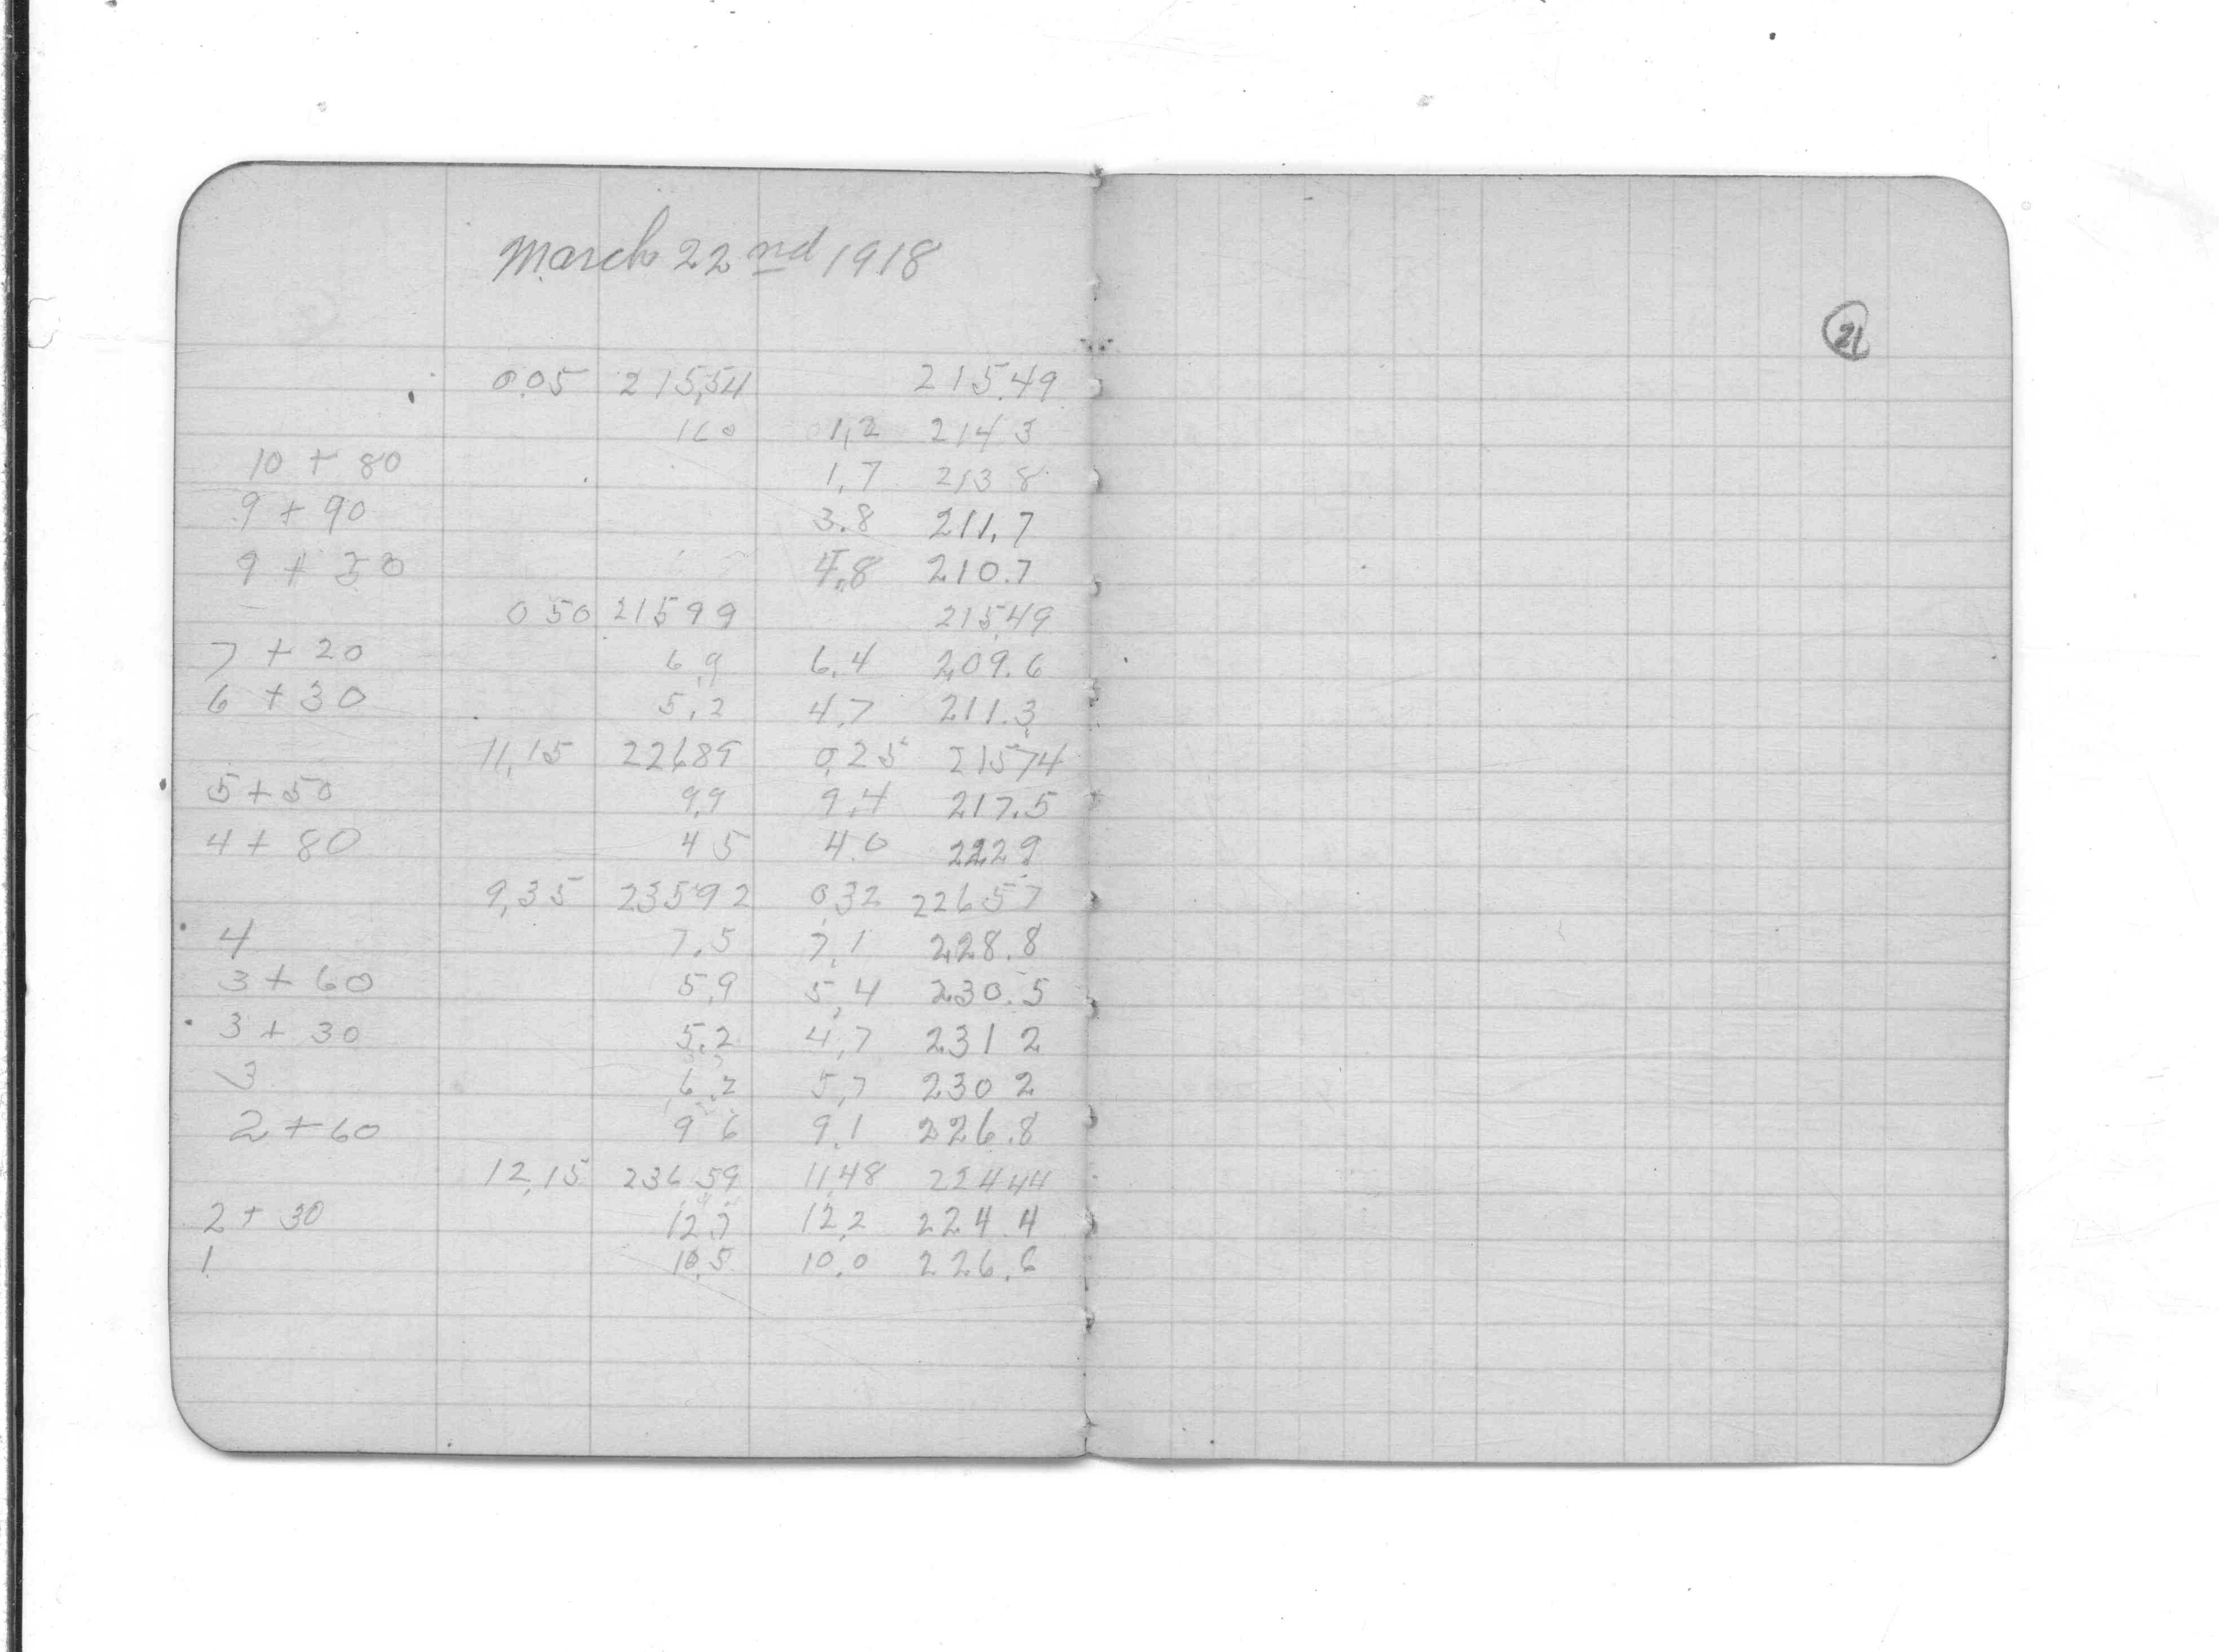 March 22nd 1918
21
0.05 215,54 215.49
1,2 214 3
10 + 80 1,7 213 8
9 + 90 3.8 211.7
9 + 30 4,8 210.7
0 50 215 99 215,49
7 + 20 6,9 6,4 209.6
6 + 30 5,2 4,7 211.3
11,15 226,89 0,25 21574
5 + 50 9,9 9,4 217.5
4 + 80 4 5 4.0 222 9
9,35 235 92 0,32 226 57
4 7.5 7,1 228.8
3 + 60 5,9 5,4 230.5
3 + 30 5.2 4,7 231 2
3 6,2 5,7 230 2
2 + 60 9 6 9.1 226.8
12,15 236 59 11,48 224 44
2 + 30 12 7 12,2 224 4
1 10,5 10,0 226.6